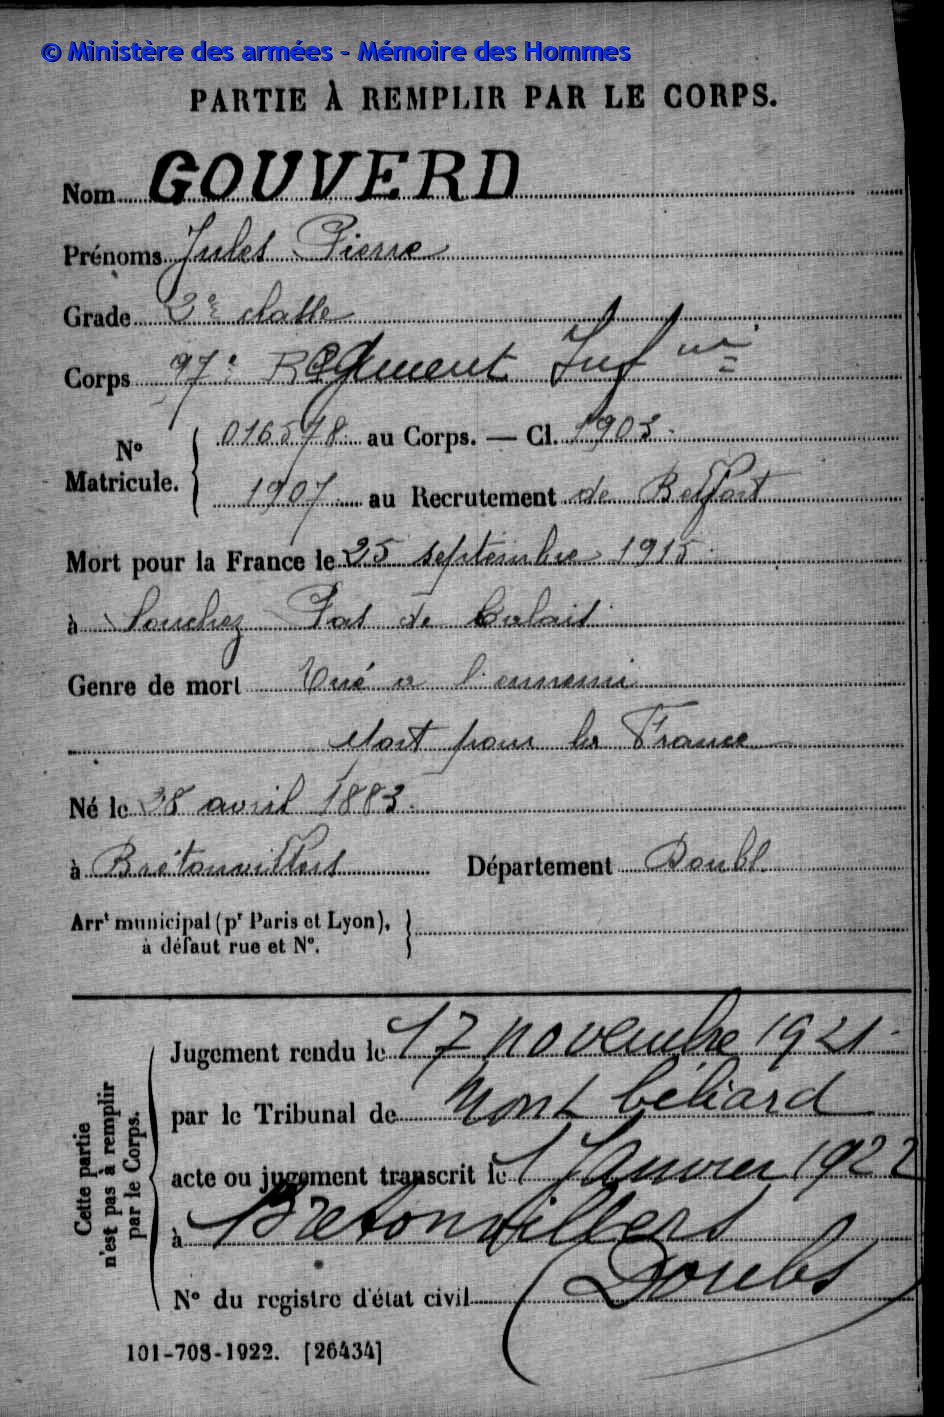 © Ministère des armées - Mémoire des Hommes
PARTIE À REMPLIR PAR LE CORPS.
Nom GOUVERD
Prénoms Jules Pierre
Grade 2e classe
Corps 97e Régiment Inf rie
N° Matricule. { 016578 au Corps. — Cl. 1903.
1907 au Recrutement de Belfort
Mort pour la France le 25 septembre 1915.
à Souchez Pas de Calais
Genre de mort Tué à l'ennemi
Mort pour la France
Né le 28 avril 1883.
à Bretonvillers Département Doubs.
Arrt municipal (pr Paris et Lyon),
à défaut rue et N°. }
Cette partie n'est pas à remplir par le Corps.
Jugement rendu le 17 novembre 1921.
par le Tribunal de Montbéliard
acte ou jugement transcrit le 1 Janvier 1922
à Bretonvillers
N° du registre d'état civil (Doubs)
101-708-1922. [26434]